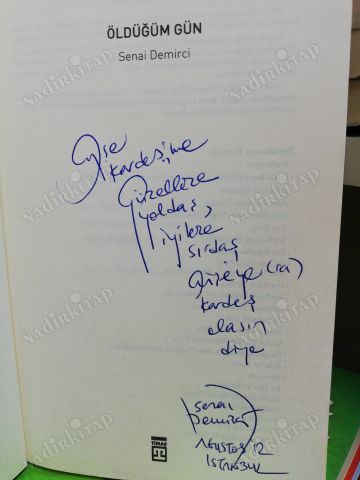 ÖLDÜĞÜM GÜN
Senai Demirci
Ayşe
kardeşime
Güzellere
yoldaş,
iyilere
sırdaş
Ayşe'ye (ra)
kardeş
olasın
diye
Senai
Demirci
AĞUSTOS 12
İSTANBUL
TİMAŞ
NADİRKİTAP